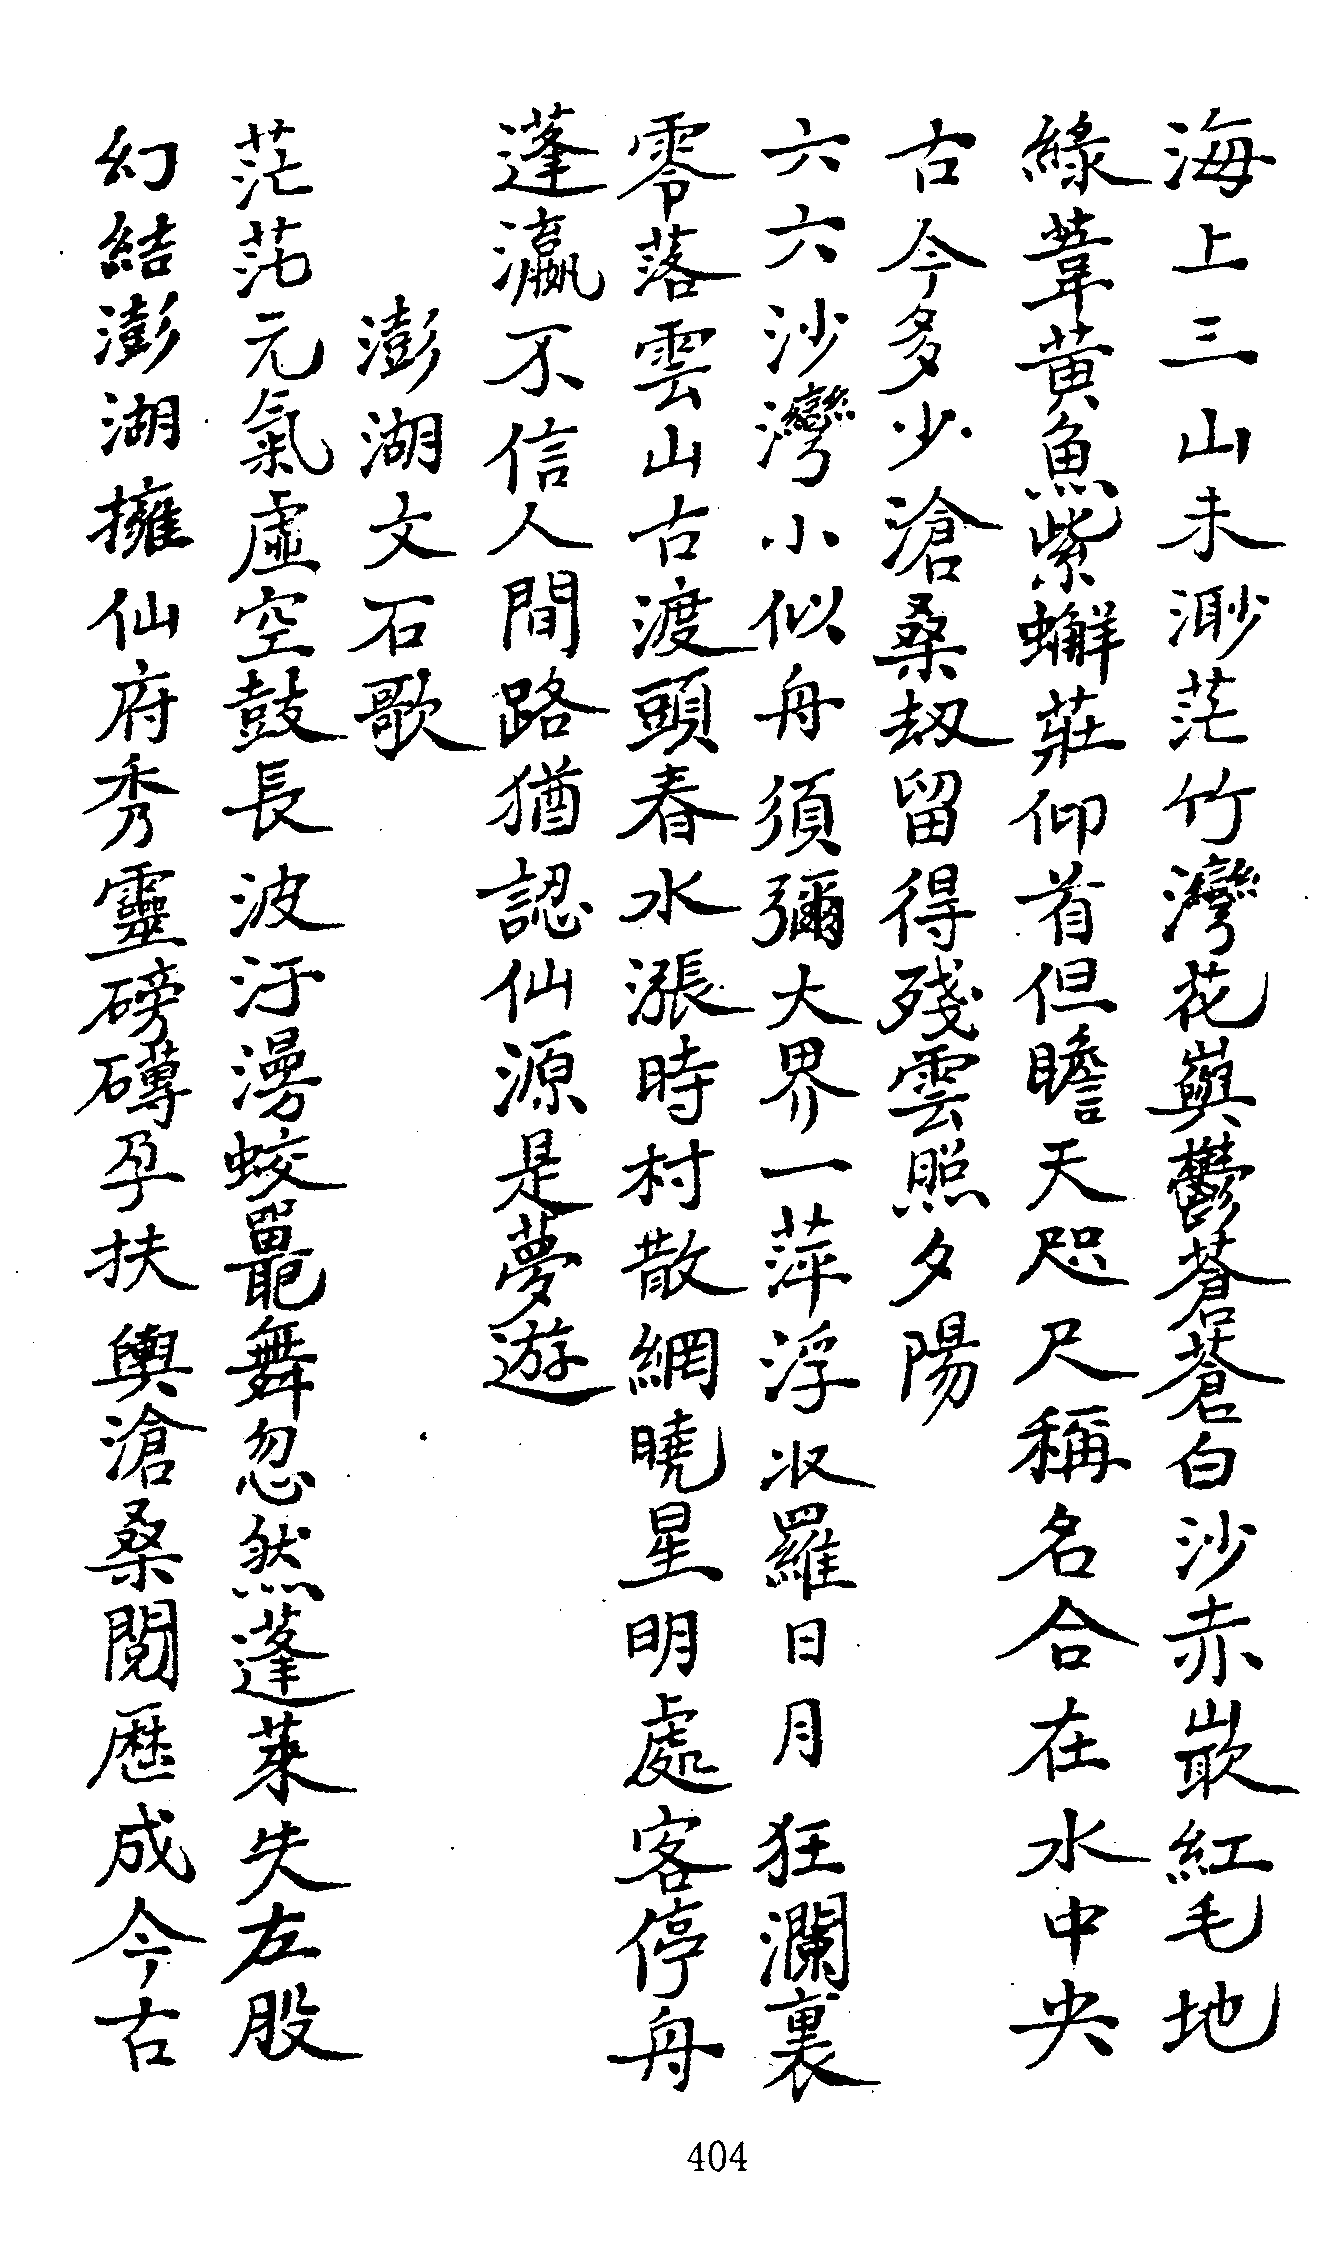 海上三山未渺茫竹灣花嶼鬱蒼蒼白沙赤嵌紅毛地
綠葦黃魚紫蠏莊仰首但瞻天咫尺稱名合在水中央
古今多少滄桑刼留得殘雲照夕陽
六六沙灣小似舟須彌大界一萍浮收羅日月狂瀾裏
零落雲山古渡頭春水漲時村散網曉星明處客停舟
蓬瀛不信人間路猶認仙源是夢遊
澎湖文石歌
茫茫元氣虛空鼓長波汙漫蛟鼉舞忽然蓬萊失左股
幻結澎湖擁仙府秀靈磅礡孕扶輿滄桑閱歷成今古
404